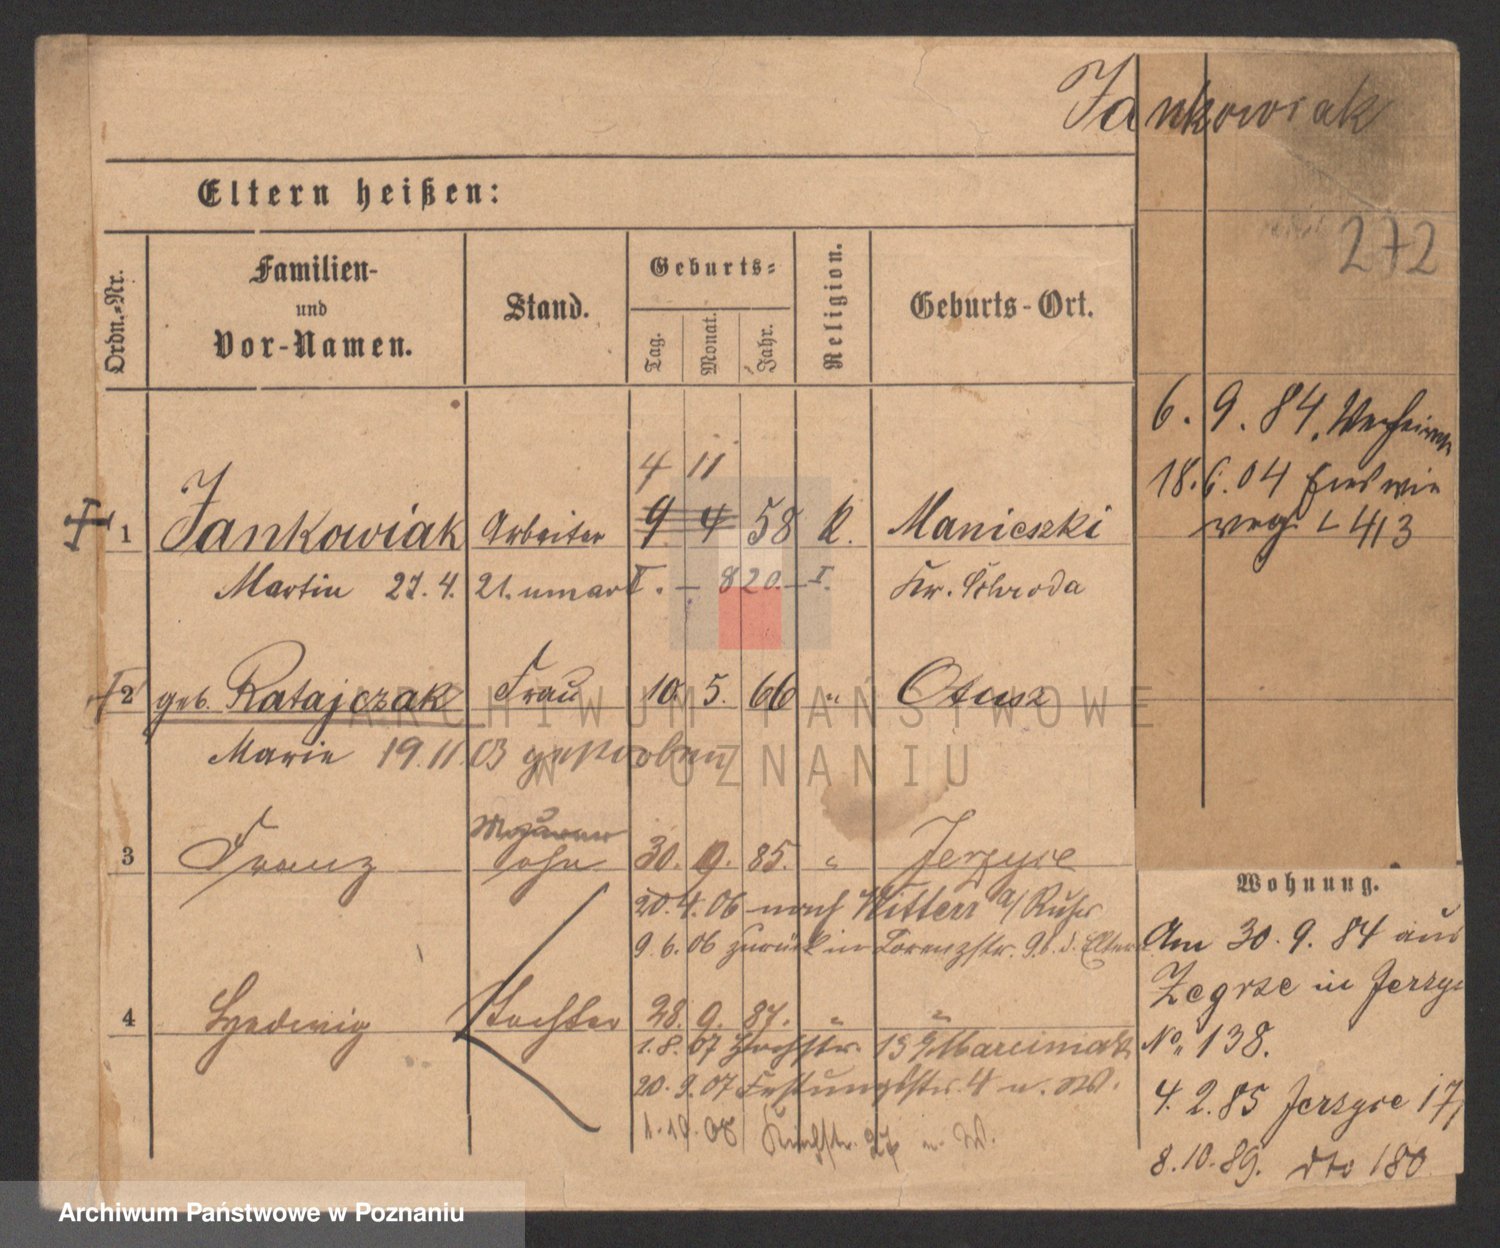 Jankowiak
272
Eltern heißen:
Ordn.-Nr.
Familien-
und
Vor-Namen.
Stand.
Geburts-
Tag.
Monat.
Jahr.
Religion.
Geburts-Ort.
6. 9. 84. Verheirat
18. 6. 04
4 11
1 Jankowiak Arbeiter 9 4 58 k. Maniczki
Martin 27. 4. 21. Kr. Schroda
2 geb. Ratajczak Frau 10. 5. 66 " Otusz
Marie 19.11.03 gestorben
Maurer
3 Franz Sohn 30. 9. 85. " Jerzyce
20.4.06 nach Witten a/Ruhr
9.6.06 zurück in Lorenzstr. 9 b. d. Eltern
4 Hedwig Tochter 28. 9. 87. " "
1.8.07 Hochstr. 15 Marciniak
20.9.07 Festungsstr. 4 n. W.
1.10.08 Kirchstr. 27 n. W.
Wohnung.
Am 30. 9. 84 aus
Zegrze in Jerzyce
No. 138.
4. 2. 85 Jerzyce 17
8.10.89. dto 180
ARCHIWUM PAŃSTWOWE
W POZNANIU
Archiwum Państwowe w Poznaniu